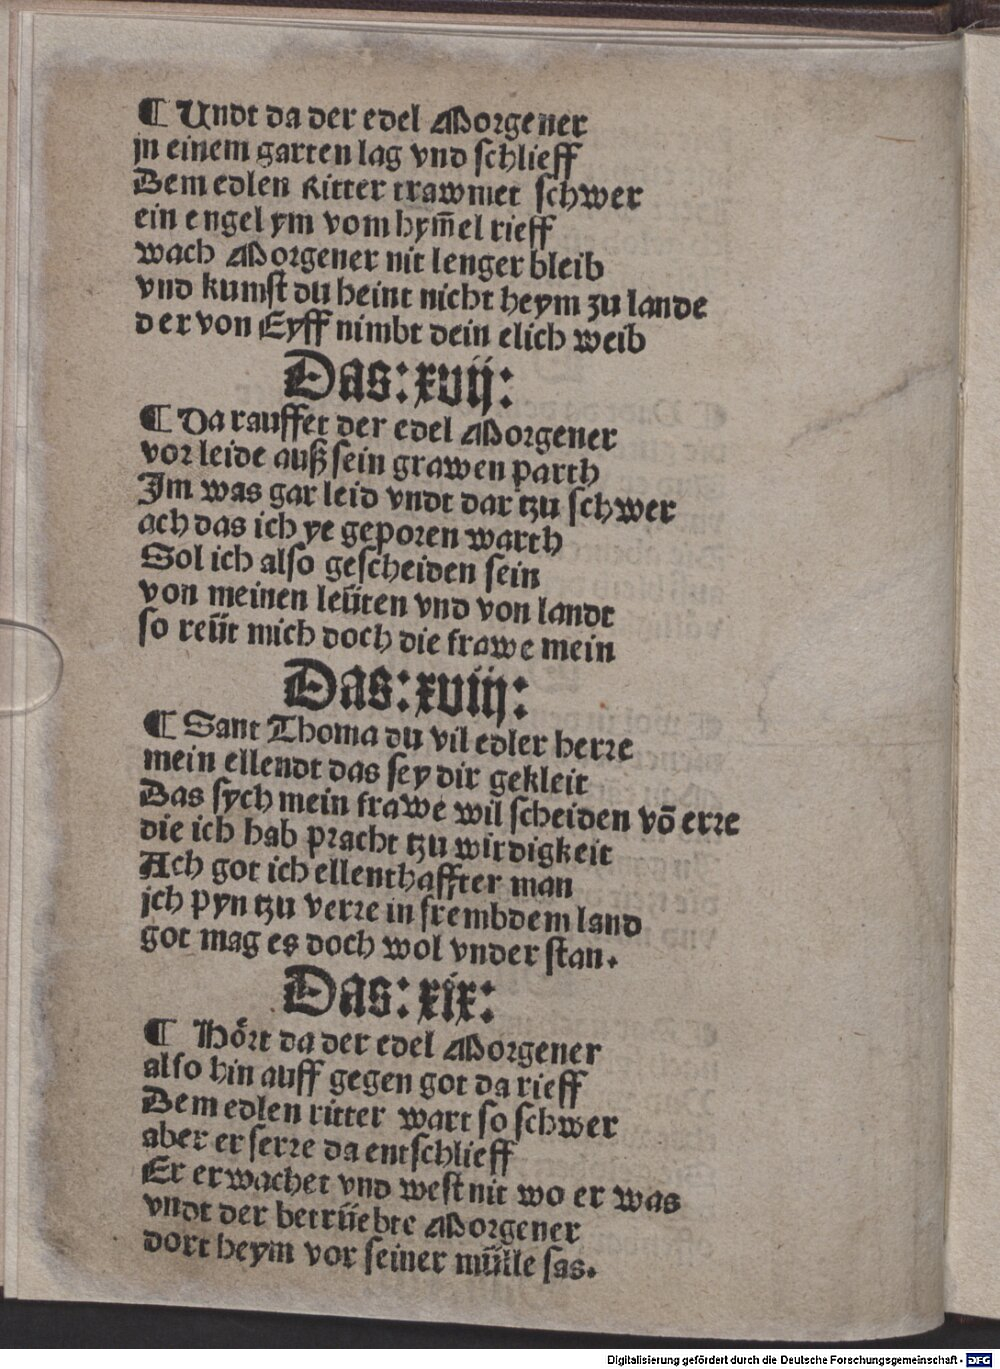 ¶ Undt da der edel Morgener
jn einem garten lag vnd schlieff
Dem edlen Ritter trawmet schwer
ein engel ym vom hym̄el rieff
wach Morgener nit lenger bleib
vnd kumst du heint nicht heym zu lande
der von Eyff nimbt dein elich weib
Das: xvij:
¶ Da rauffet der edel Morgener
vor leide auß sein grawen parth
Im was gar leid vndt dar tzu schwer
ach das ich ye geporen warth
Sol ich also gescheiden sein
von meinen leüten vnd von landt
so reüt mich doch die frawe mein
Das: xviij:
¶ Sant Thoma du vil edler herre
mein ellendt das sey dir gekleit
Das sych mein frawe wil scheiden vō erre
die ich hab pracht tzu wirdigkeit
Ach got ich ellenthaffter man
jch pyn tzu verre in frembdem land
got mag es doch wol vnder stan.
Das: xix:
¶ Hört da der edel Morgener
also hin auff gegen got da rieff
Dem edlen ritter wart so schwer
aber er serre da entschlieff
Er erwachet vnd west nit wo er was
vndt der betrüebte Morgener
dort heym vor seiner mülle sas.
Digitalisierung gefördert durch die Deutsche Forschungsgemeinschaft - DFG